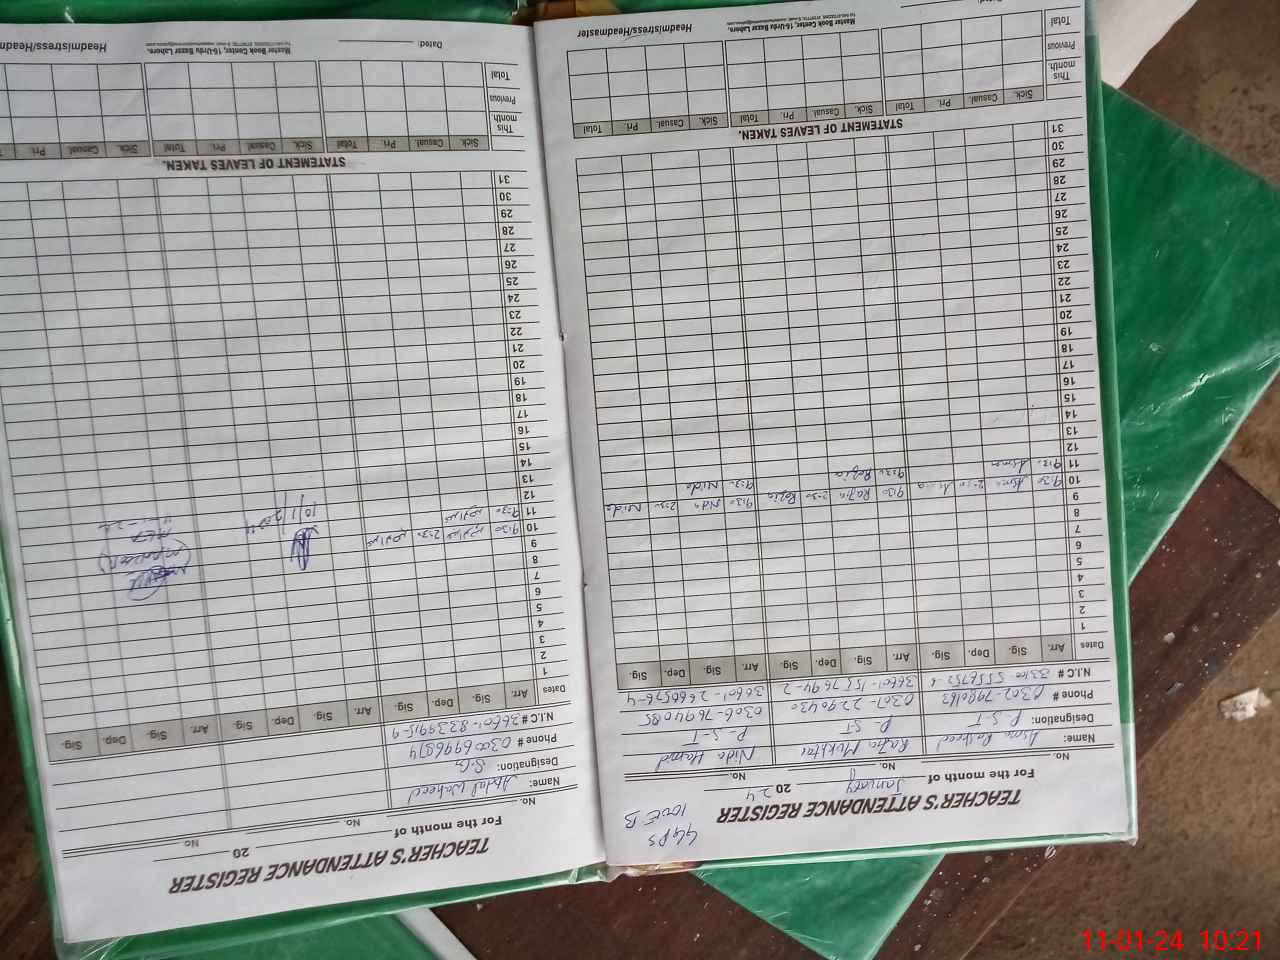 GGPS
100 E B
TEACHER'S ATTENDANCE REGISTER
For the month of January 2024
No. No. No.
Name: Asma Rasheed Razia Mukhtar Nida Hamid
Designation: P.S.T P-ST P-S-T
Phone # 0307-2290430 0306-7694085
N.I.C #
Dates Arr. Sig. Dep. Sig. Arr. Sig. Dep. Sig. Arr. Sig. Dep. Sig.
1
2
3
4
5
6
7
8
9
10 9:30 Asma 2:30 Asma 9:30 Razia 2:30 Razia 9:30 Nida 2:30 Nida
11 9:30 Asma 9:30 Razia 9:30 Nida
12
13
14
15
16
17
18
19
20
21
22
23
24
25
26
27
28
29
30
31
STATEMENT OF LEAVES TAKEN.
Sick. Casual. Pri. Total Sick. Casual. Pri. Total Sick. Casual. Pri. Total
This month.
Previous
Total
Master Book Center, 16-Urdu Bazar Lahore.
Headmistress/Headmaster
TEACHER'S ATTENDANCE REGISTER
For the month of 20
No. No. No.
Name: Abdul Waheed
Designation: S.G
Phone # 03006996894
N.I.C # 36601-8339915-9
Dates Arr. Sig. Dep. Sig. Arr. Sig. Dep. Sig.
1
2
3
4
5
6
7
8
9
10 9:30 2:30
11 9:30
10/1/2024
12
13
14
15
16
17
18
19
20
21
22
23
24
25
26
27
28
29
30
31
STATEMENT OF LEAVES TAKEN.
Sick. Casual. Pri. Total Sick. Casual. Pri. Total Sick. Casual. Pri.
This month.
Previous
Total
Dated:
Master Book Center, 16-Urdu Bazar Lahore.
11-01-24 10:21